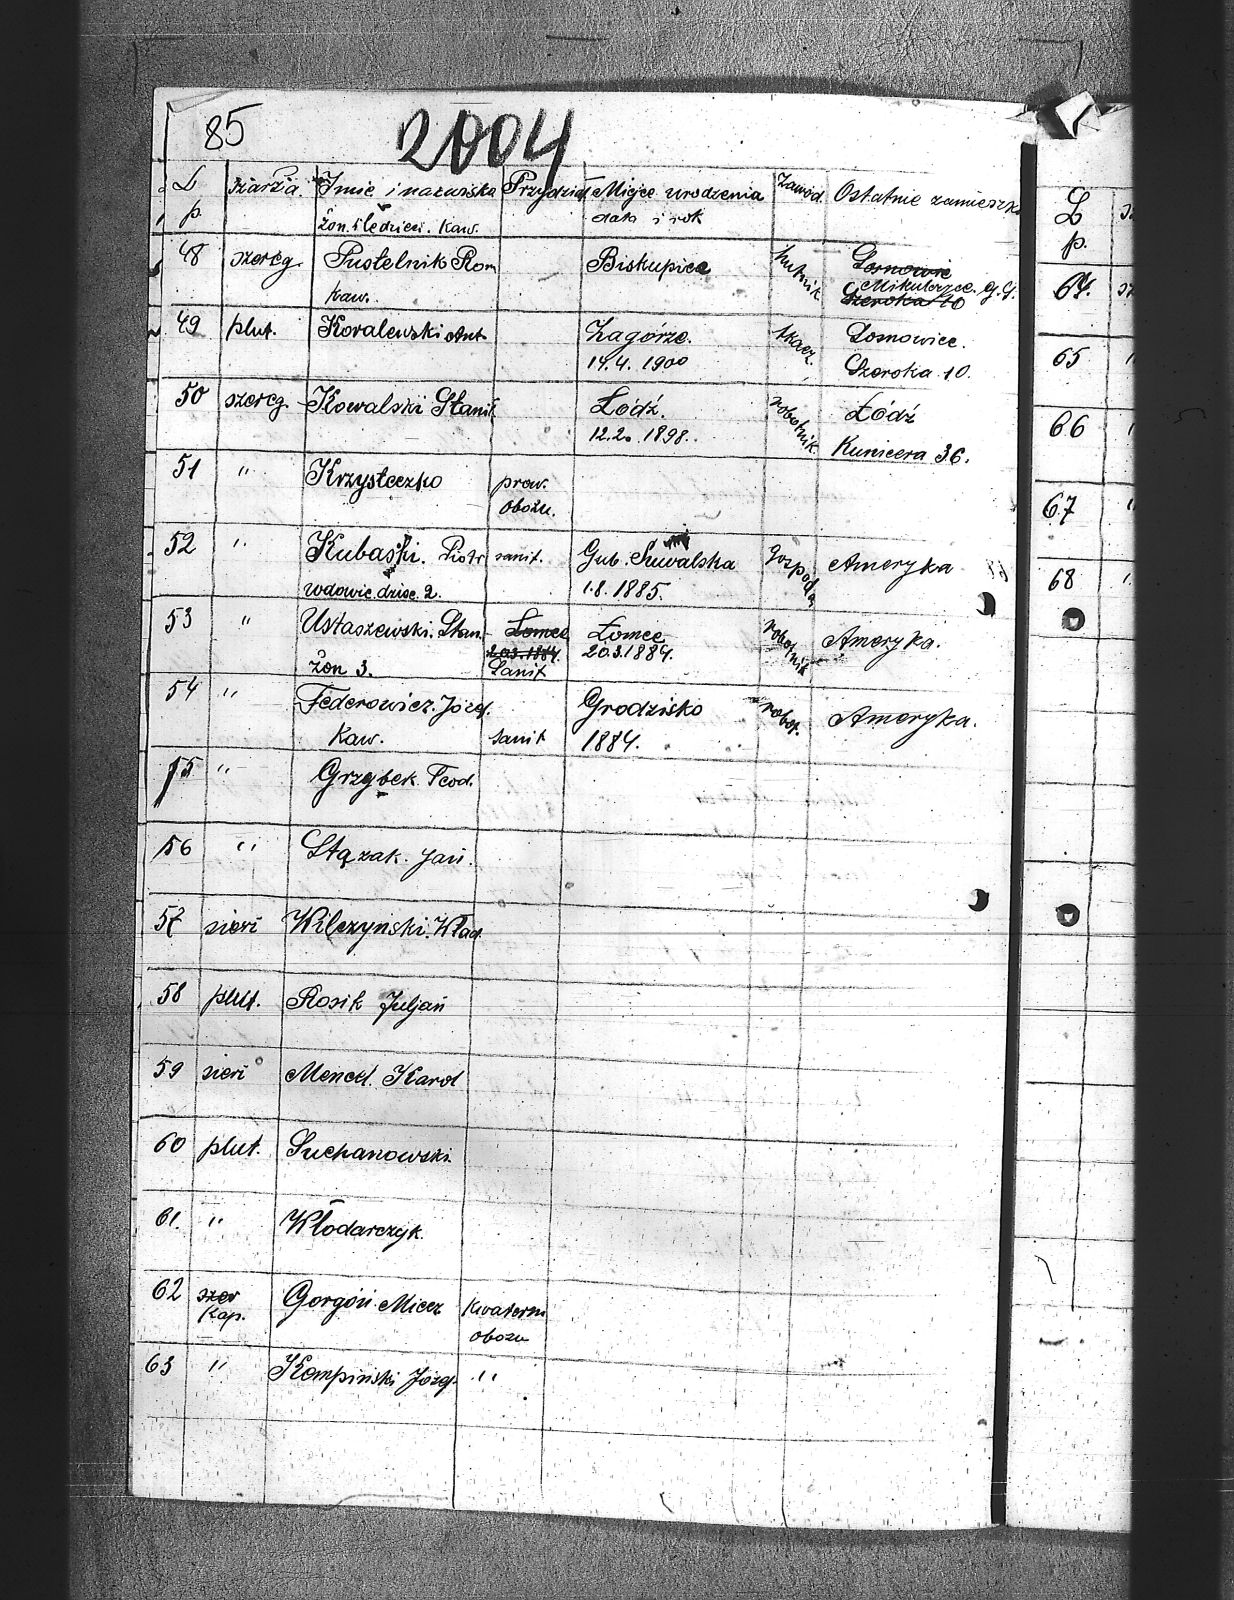 85
2004
L p. szarża. Imię i nazwiska Przydział Miejsce urodzenia Zawód. Ostatnie zamieszk
żon. śledzien. kaw. data i rok
48 szereg. Pustelnik Rom Biskupice hutnik Sosnowie
Mikulczyce. G.G.
kaw. Szeroka 10
49 plut. Kovalewski Ant. Zagórze. tkacz. Sosnowiec.
14.4.1900 Szeroka 10.
50 szereg. Kowalski Stanis Łódź. robotnik. Łódź
12.2.1898. Kunicera 36.
51 " Krzysteczko prow.
obozu.
52 " Kubaski. Piotr sanit. Gub. Suwalska Gospoda Ameryka
wdowiec dziec. 2. 1.8.1885.
53 " Ustaszewski. Stan. Łomce Łomce robotnik Ameryka.
20.3.1884. 20.3.1884.
żon 3. Sanit
54 " Federowicz. Józef. Grodzisko robot. Ameryka.
Kaw. sanit 1884.
55 " Grzybek Teod.
56 " Stązak. Jan.
57 sierż Wilczyński. Wład.
58 plut. Rosik Juljan
59 sierż Mencel. Karol
60 plut. Suchanowski.
61. " Włodarczyk.
62 szer Gorgóń Miecz Kwaterm
Kap. obozu
63 " Kompiński Józef. "
L
p.
64.
65 "
66
67 "
68